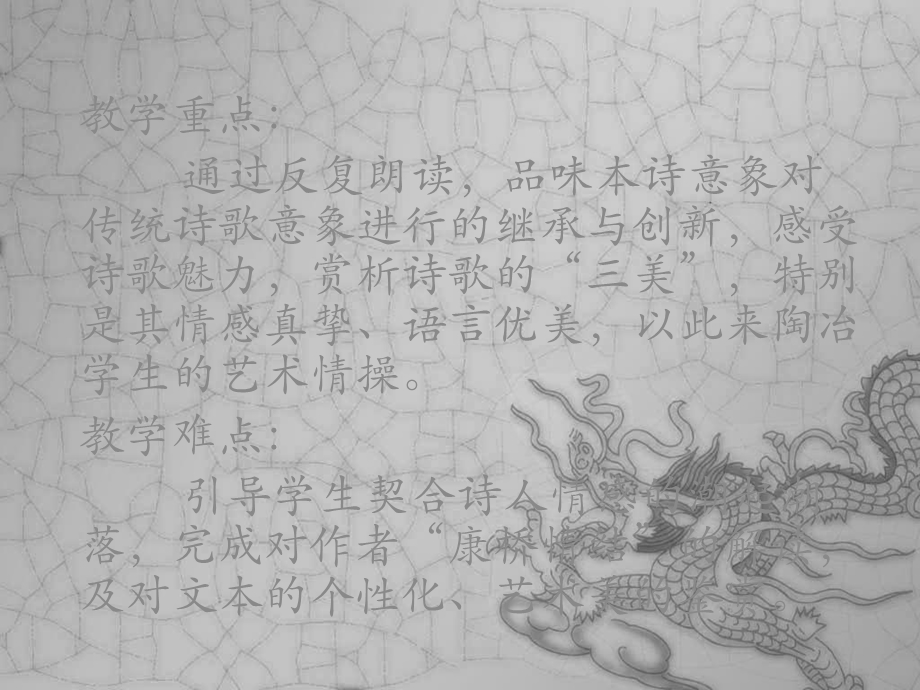 教学重点：
通过反复朗读，品味本诗意象对
传统诗歌意象进行的继承与创新，感受
诗歌魅力，赏析诗歌的“三美”，特别
是其情感真挚、语言优美，以此来陶冶
学生的艺术情操。
教学难点：
引导学生契合诗人情
落，完成对作者“康桥情
及对文本的个性化、艺术